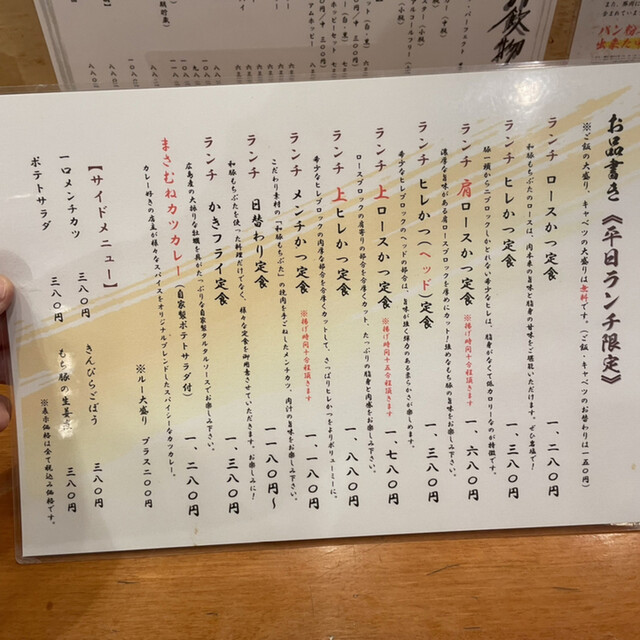 お品書き《平日ランチ限定》
※ご飯の大盛り、キャベツの大盛りは無料です。(ご飯・キャベツのお替わりは一五〇円)
ランチ ロースかつ定食 一、二八〇円
和豚もちぶたのロースは、肉本来の旨味と脂身の甘味をご堪能いただけます。ぜひ塩で!
ランチ ヒレかつ定食 一、三八〇円
豚一頭から二ブロックしかとれない希少なヒレは、脂身がなくて低カロリーなのが特徴です。
ランチ 肩ロースかつ定食 ※揚げ時間十分程頂きます 一、六八〇円
濃厚な旨味のある肩ロースブロックを厚めにカット!噛めるもち豚の旨味をお楽しみ下さい。
ランチ ヒレかつ(ヘッド)定食 一、三八〇円
希少なヒレブロックのヘッドの部分は、旨味が強く弾力のある柔らかさが魅力です。
ランチ 上ロースかつ定食 ※揚げ時間十五分程頂きます 一、七八〇円
ロースブロックの肩寄りの部分を分厚くカット、たっぷりの脂身と肉感をお楽しみ下さい。
ランチ 上ヒレかつ定食 一、八八〇円
希少なヒレブロックの肉厚な部分を分厚くカットして、さっぱりヒレかつをよりボリューミーに。
ランチ メンチかつ定食 ※揚げ時間十分程頂きます 一、一八〇円
こだわり素材の「和豚もちぶた」の挽肉を手ごねしたメンチカツ。肉汁の旨味をお楽しみ下さい。
ランチ 日替わり定食 一、一八〇円〜
和豚もちぶたを使った料理だけでなく、様々な定食を御用意させていただきます。お楽しみに!
ランチ かきフライ定食 一、三八〇円
広島産の大振りな牡蠣を具がたっぷりな自家製タルタルソースでお楽しみ下さい。
まさむねカツカレー(自家製ポテトサラダ付) 一、二八〇円
カレー好きの店主が様々なスパイスをオリジナルブレンドしたスパイシーなカツカレー。
※ルー大盛り プラス二〇〇円
【サイドメニュー】
きんぴらごぼう 三八〇円
一口メンチカツ 三八〇円
もち豚の生姜 三八〇円
ポテトサラダ 三八〇円
※表示価格は全て税込み価格です。